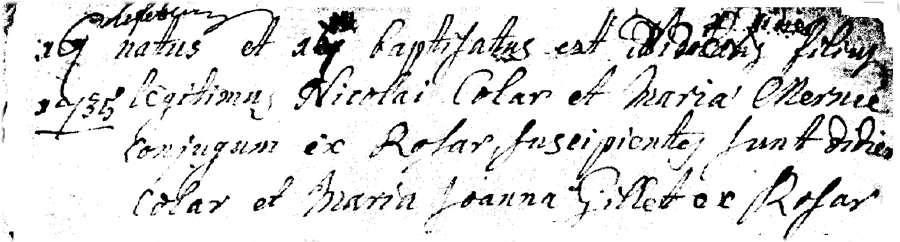 natus et baptisatus est filius
1735 legitimus Nicolai Colar et Maria Mernie
conjugum ex Rosar, suscipientes sunt didier
Colar et Maria Joanna Gillet ex Rosar